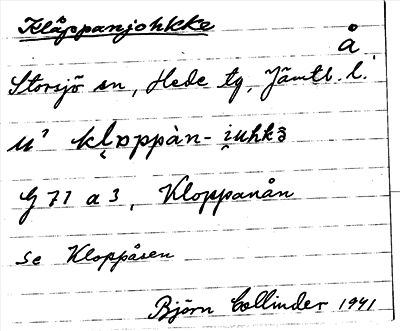 Klåppanjohkke
å
Storsjö sn, Hede tg, Jämtl. l.
kl̥ɒppàn- i̯uhkɜ
G 71 a 3, Kloppanån
se Kloppåsen
Björn Collinder 1941